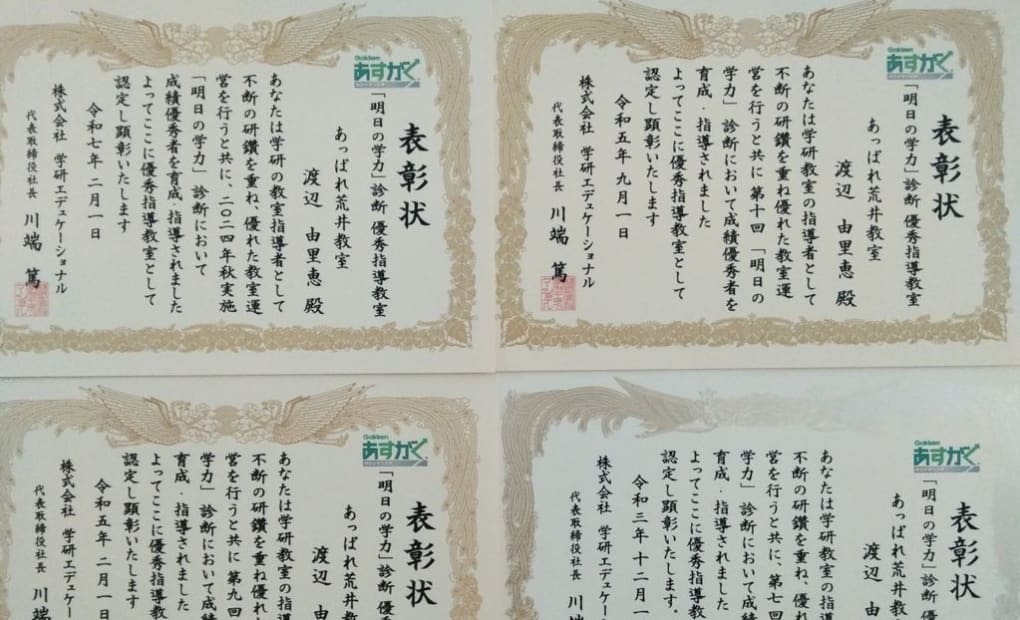 Gakken
あすがく
表彰状
「明日の学力」診断 優秀指導教室
あっぱれ荒井教室
渡辺 由里恵 殿
あなたは学研の教室指導者として
不断の研鑽を重ね、優れた教室運
営を行うと共に、二〇二四年秋実施
「明日の学力」診断において
成績優秀者を育成・指導されました
よってここに優秀指導教室として
認定し顕彰いたします
令和七年 二月一日
株式会社 学研エデュケーショナル
代表取締役社長 川端 篤
Gakken
あすがく
表彰状
「明日の学力」診断 優秀指導教室
あっぱれ荒井教室
渡辺 由里恵 殿
あなたは学研教室の指導者として
不断の研鑽を重ね優れた教室運
営を行うと共に 第十回 「明日の
学力」 診断において成績優秀者を
育成・指導されました
よってここに優秀指導教室として
認定し顕彰いたします
令和五年 九月一日
株式会社 学研エデュケーショナル
代表取締役社長 川端 篤
Gakken
あすがく
表彰状
「明日の学力」診断 優
あっぱれ荒井教
渡辺 由
あなたは学研教室の指導
不断の研鑽を重ね優れ
営を行うと共に 第九回
学力」 診断において成績
育成・指導されました
よってここに優秀指導教
認定し顕彰いたします
令和五年 二月一日
株式会社 学研エデュケー
代表取締役社長 川端
Gakken
あすがく
表彰状
「明日の学力」診断 優
あっぱれ荒井教
渡辺 由
あなたは学研教室の指
不断の研鑽を重ね、優れ
営を行うと共に、第七回
学力」 診断において成績
育成・指導されました
よってここに優秀指導教
認定し顕彰いたします。
令和三年 十二月一
株式会社 学研エデュケー
代表取締役社長 川端